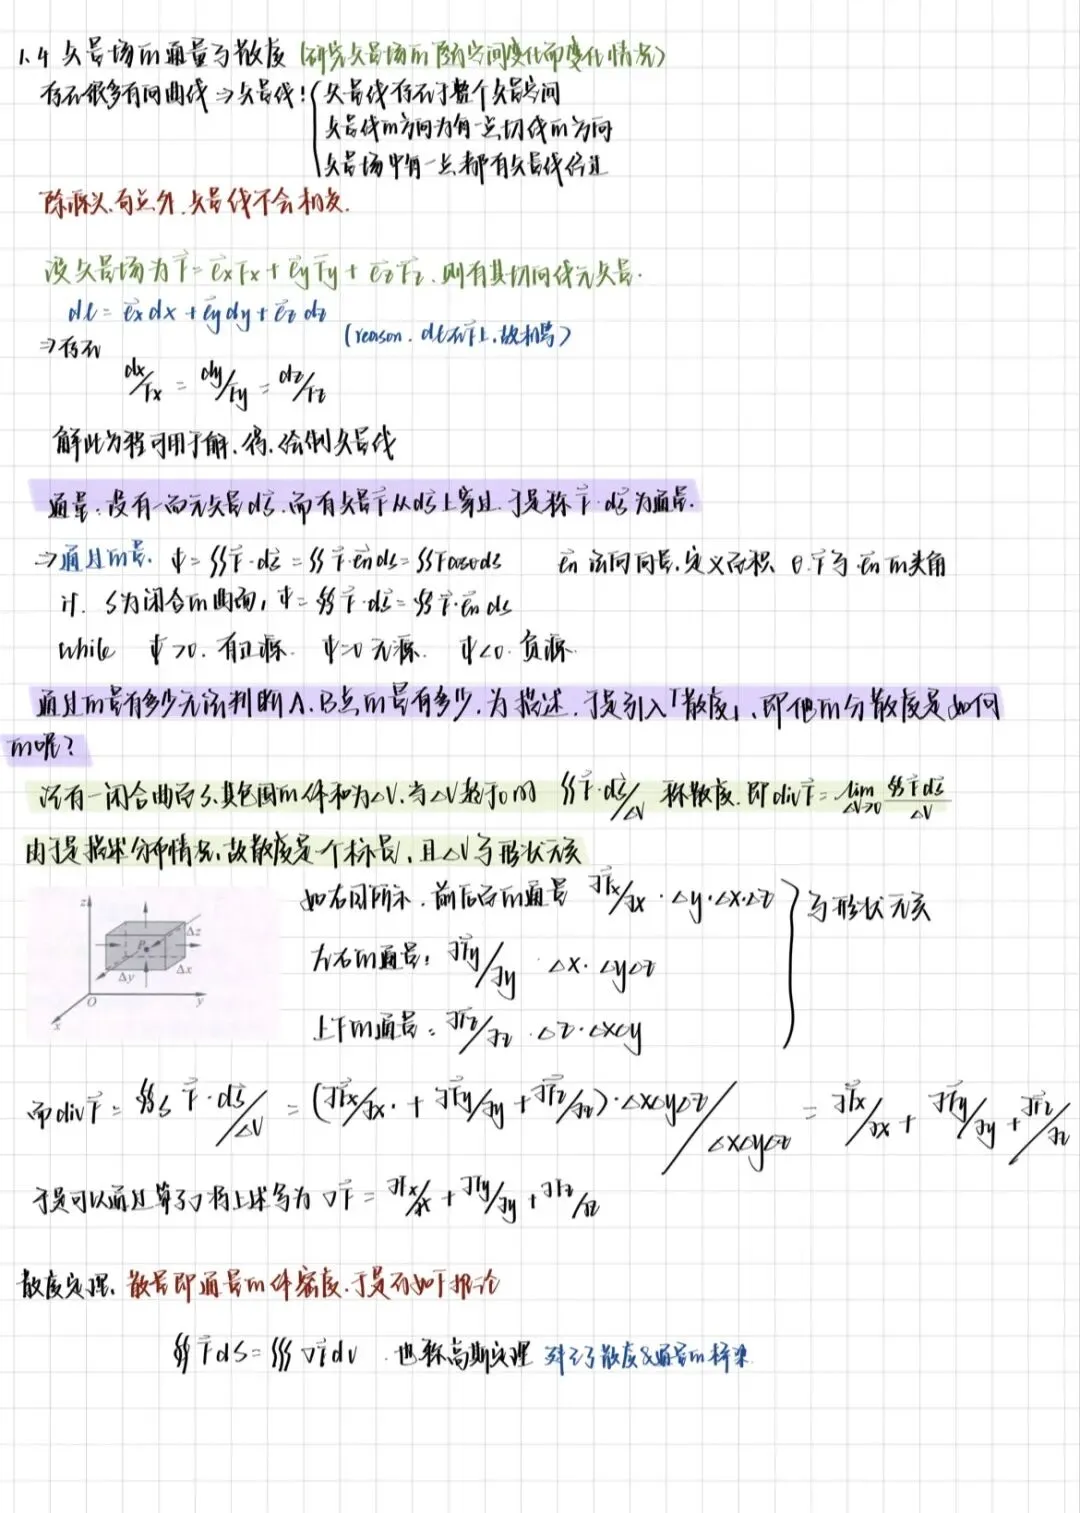 1.4 矢量场的通量与散度 (研究矢量场的随空间变化而变化情况)
存在很多有向曲线 ⇒ 矢量线: { 矢量线存在于整个矢量空间
矢量线的方向为每一点切线的方向
矢量场中每一点都有矢量线经过
除源头、奇点外, 矢量线不会相交.
设矢量场为 F⃗ = e⃗xFx + e⃗yFy + e⃗zFz, 则有其切向线元矢量.
dl = e⃗x dx + e⃗y dy + e⃗z dz
(reason. dl在F⃗上, 故相等)
⇒ 存在
dx/Fx = dy/Fy = dz/Fz
解此方程可用于解、得、绘制矢量线
通量: 设有一面元矢量dS⃗, 而有矢量F⃗从dS⃗上穿过, 于是称F⃗·dS⃗为通量.
⇒ 通过的量. ψ = ∬F⃗·dS⃗ = ∬F⃗·e⃗n ds = ∬Fcosθds e⃗n 法向向量, 定义面积 θ: F⃗与e⃗n的夹角
if. S为闭合的曲面, ψ = ∯F⃗·dS⃗ = ∯F⃗·e⃗n ds
while ψ>0. 有正源. ψ=0 无源. ψ<0. 负源.
通过的量有多少无法判断A、B点的量有多少, 为描述, 于是引入「散度」, 即他的分散度是如何
的呢?
设有一闭合曲面S, 其包围的体积为ΔV, 当ΔV趋于0时 ∯F⃗·dS⃗/ΔV 称散度. 即divF⃗ = lim ΔV→0 ∯F⃗dS⃗/ΔV
由于是描述分布情况, 故散度是一个标量, 且ΔV与形状无关
如右图所示, 前后面的通量 ∂F⃗x/∂x · Δy·Δx·Δz } 与形状无关
z Δz P Δy Δx O y x
左右的通量: ∂F⃗y/∂y · Δx·ΔyΔz
上下的通量: ∂F⃗z/∂z · Δz·ΔxΔy
而divF⃗ = ∯s F⃗·dS⃗/ΔV = (∂F⃗x/∂x + ∂F⃗y/∂y + ∂F⃗z/∂z)·ΔxΔyΔz/ΔxΔyΔz = ∂F⃗x/∂x + ∂F⃗y/∂y + ∂F⃗z/∂z
于是可以通过算子∇将上述写为 ∇F⃗ = ∂Fx/∂x + ∂Fy/∂y + ∂Fz/∂z
散度定理. 散量即通量的体密度, 于是有如下推论
∯F⃗dS = ∭∇F⃗dv. 也称高斯定理 建立了散度&通量的桥梁.